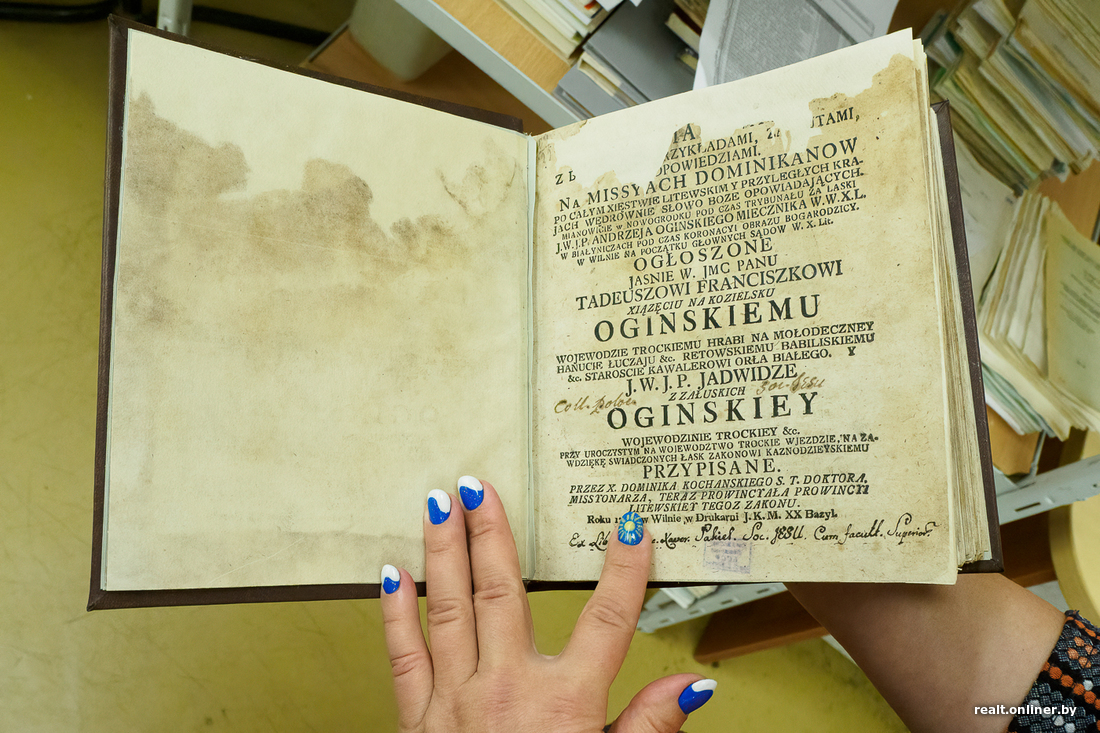 IA
TAMI,
ZYKŁADAMI,
OPOWIEDZIAMI.
NA MISSYACH DOMINIKANOW
PO CAŁYM XIĘSTWIE LITEWSKIM Y PRZYLEGŁYCH KRA-
JACH WĘDROWNIE SŁOWO BOZE OPOWIADAJĄCYCH.
MIANOWICIE w NOWOGRODKU POD CZAS TRYBUNAŁU ZA LASKI
J.W.J.P. ANDRZEJA OGINSKIEGO MIECZNIKA W.W.X.L.
W BIAŁYNICZACH POD CZAS KORONACYI OBRAZU BOGARODZICY.
W WILNIE NA POCZĄTKU GŁOWNYCH SĄDOW W. X. Lit.
OGŁOSZONE
JASNIE W. JMC PANU
TADEUSZOWI FRANCISZKOWI
XIĄZĘCIU NA KOZIELSKU
OGINSKIEMU
WOJEWODZIE TROCKIEMU HRABI NA MOŁODECZNEY
HANUCIE ŁUCZAJU &c. RETOWSKIEMU BABILISKIEMU
&c. STAROSCIE KAWALEROWI ORŁA BIAŁEGO. Y
J. W. J. P. JADWIDZE
Z ZAŁUSKICH
Coll. Soc. Jesu
OGINSKIEY
WOJEWODZINIE TROCKIEY &c.
PRZY UROCZYSTYM NA WOJEWODZTWO TROCKIE WJEZDZIE, NA ZA-
WDZIĘKĘ SWIADCZONYCH ŁASK ZAKONOWI KAZNODZIEYSKIEMU
PRZYPISANE.
PRZEZ X. DOMINIKA KOCHANSKIEGO S. T. DOKTORA,
MISSYONARZA, TERAZ PROWINCYAŁA PROWINCYI
LITEWSKIEY TEGOZ ZAKONU.
Roku w Wilnie w Drukarni J. K. M. XX Bazyl.
Ex Xaver. Sakiel. Soc. JESU. Cum facult. Superior.
realt.onliner.by